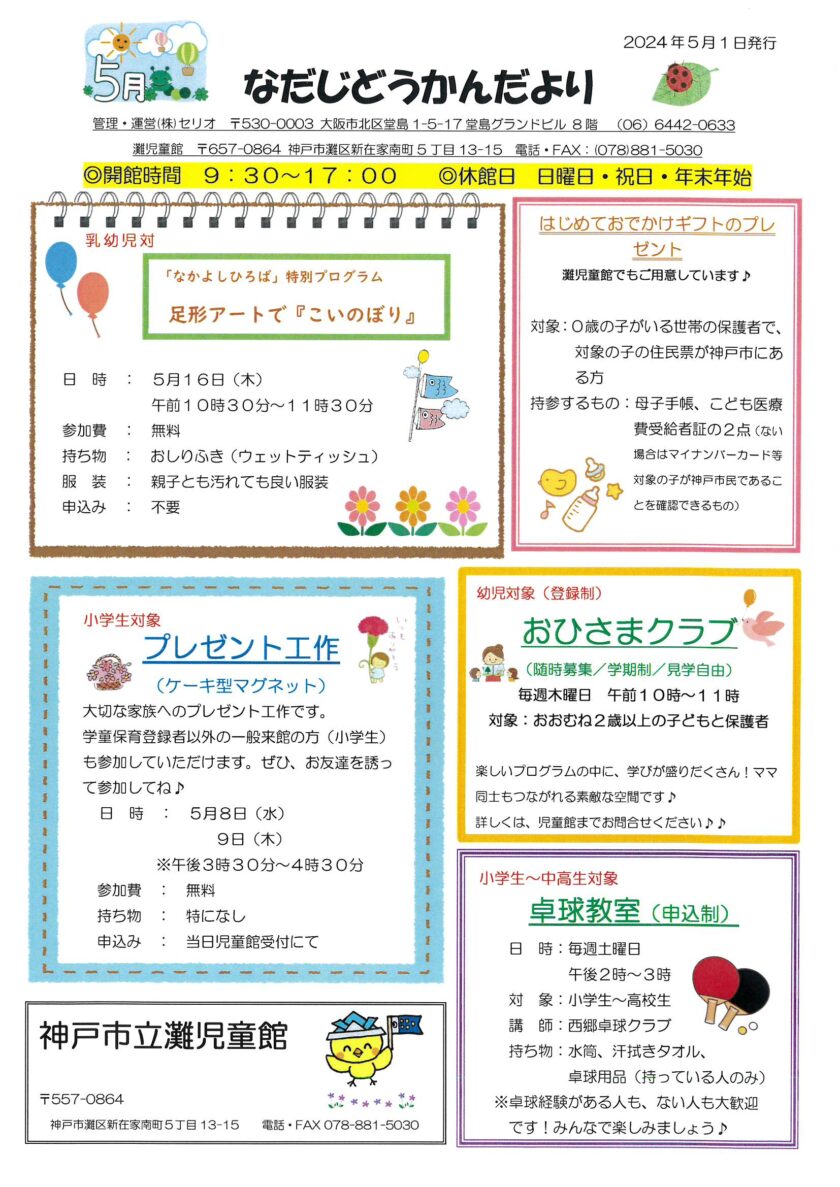 2024年5月1日発行
5月
なだじどうかんだより
管理・運営㈱セリオ 〒530-0003 大阪市北区堂島1-5-17堂島グランドビル 8階 (06) 6442-0633
灘児童館 〒657-0864 神戸市灘区新在家南町5丁目13-15 電話・FAX:(078)881-5030
◎開館時間 9:30~17:00 ◎休館日 日曜日・祝日・年末年始
乳幼児対
「なかよしひろば」特別プログラム
足形アートで『こいのぼり』
日 時 : 5月16日(木)
午前10時30分~11時30分
参加費 : 無料
持ち物 : おしりふき(ウェットティッシュ)
服 装 : 親子とも汚れても良い服装
申込み : 不要
はじめておでかけギフトのプレ
ゼント
灘児童館でもご用意しています♪
対象:0歳の子がいる世帯の保護者で、
対象の子の住民票が神戸市にあ
る方
持参するもの:母子手帳、こども医療
費受給者証の2点(ない
場合はマイナンバーカード等
対象の子が神戸市民であるこ
とを確認できるもの)
小学生対象
プレゼント工作
(ケーキ型マグネット)
いつも
ありがとう
大切な家族へのプレゼント工作です。
学童保育登録者以外の一般来館の方(小学生)
も参加していただけます。ぜひ、お友達を誘っ
て参加してね♪
日 時 : 5月8日(水)
9日(木)
※午後3時30分~4時30分
参加費 : 無料
持ち物 : 特になし
申込み : 当日児童館受付にて
幼児対象(登録制)
おひさまクラブ
(随時募集/学期制/見学自由)
毎週木曜日 午前10時~11時
対象:おおむね2歳以上の子どもと保護者
楽しいプログラムの中に、学びが盛りだくさん!ママ
同士もつながれる素敵な空間です♪
詳しくは、児童館までお問合せください♪♪
小学生~中高生対象
卓球教室(申込制)
日 時:毎週土曜日
午後2時~3時
対 象:小学生~高校生
講 師:西郷卓球クラブ
持ち物:水筒、汗拭きタオル、
卓球用品(持っている人のみ)
※卓球経験がある人も、ない人も大歓迎
です!みんなで楽しみましょう♪
神戸市立灘児童館
〒557-0864
神戸市灘区新在家南町5丁目13-15 電話・FAX 078-881-5030